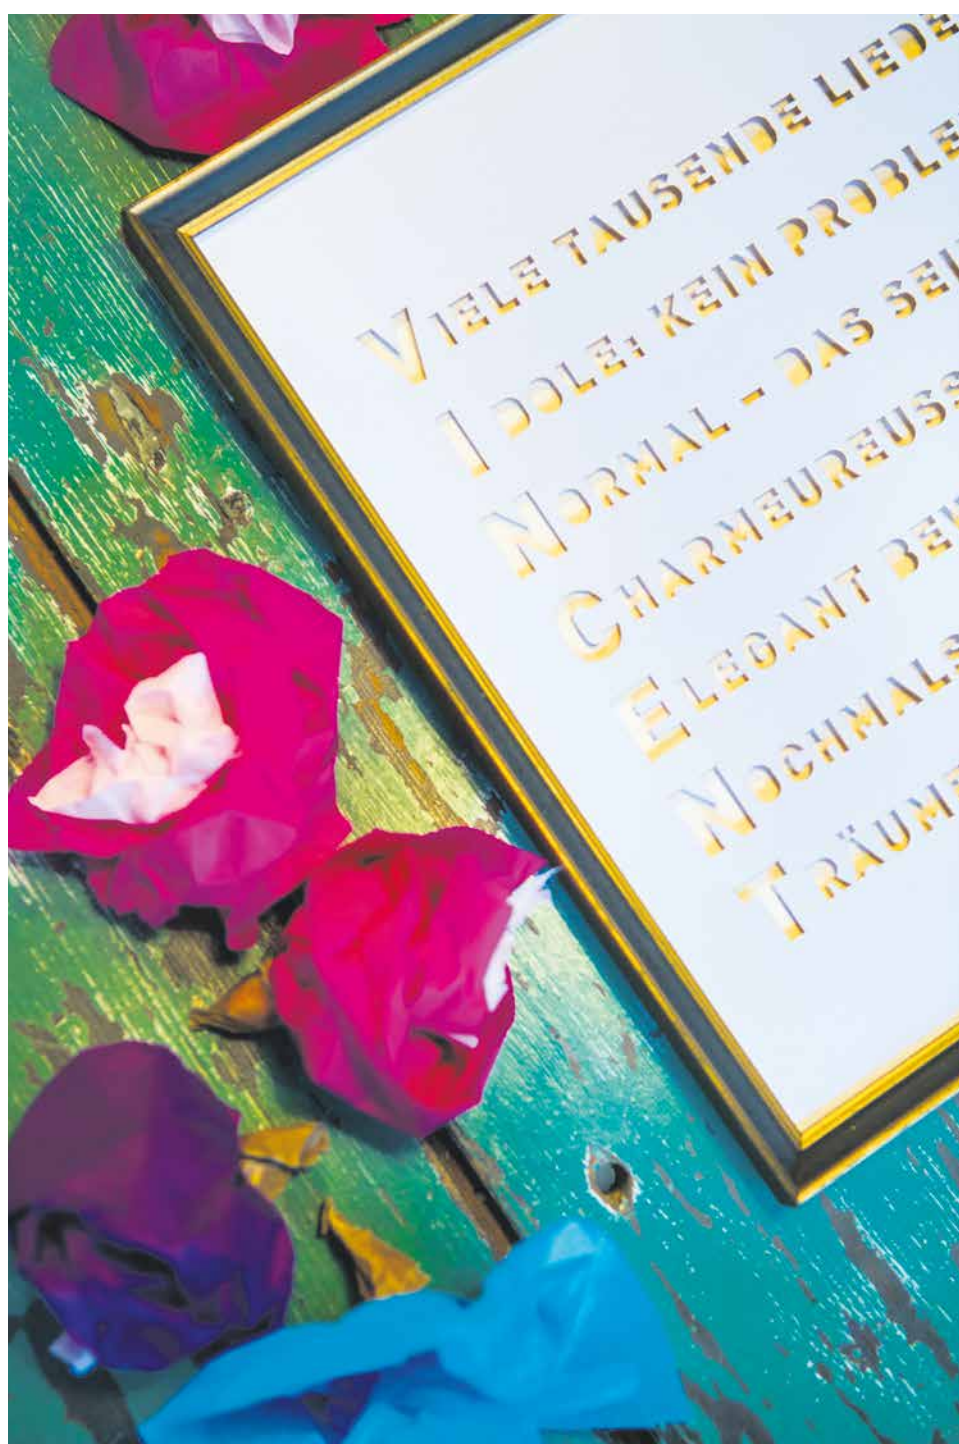 VIELE TAUSENDE LIEDE
IDOLE; KEIN PROBLE
NORMAL - DAS SEI
CHARMEUREUSS
ELEGANT BE
NOCHMALS
TRÄUM